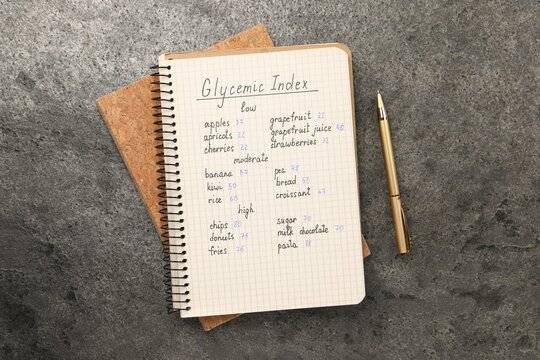 Glycemic Index
low
apples 37 grapefruit 22
apricots 22 grapefruit juice 40
cherries 22 strawberries 32
moderate
banana 57 pea 48
kiwi 50 bread 53
rice 60 croissant 67
high
chips 80 sugar 70
donuts 76 milk chocolate 70
fries 76 pasta